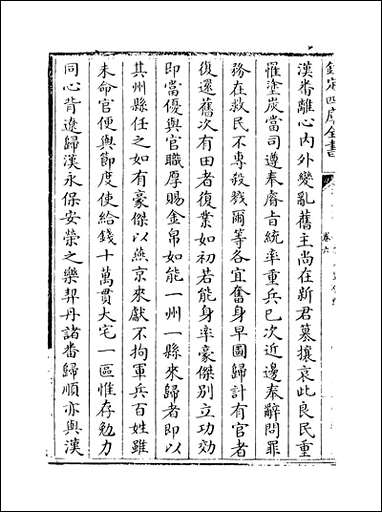 欽定四庫全書
卷六
漢番離心内外變亂舊主尚在新君篡攘哀此良民重
罹塗炭當司遵奉睿旨統率重兵已次近邊奉辭問罪
務在救民不專殺戮爾等各宜奮身早圖歸計有官者
復還舊次有田者復業如初若能身率豪傑别立功効
即當優與官職厚賜金帛如能一州一縣來歸者即以
其州縣任之如有豪傑以燕京來獻不拘軍兵百姓雖
未命官便與節度使給錢十萬貫大宅一區惟存勉力
同心背遼歸漢永保安榮之樂契丹諸番歸順亦與漢